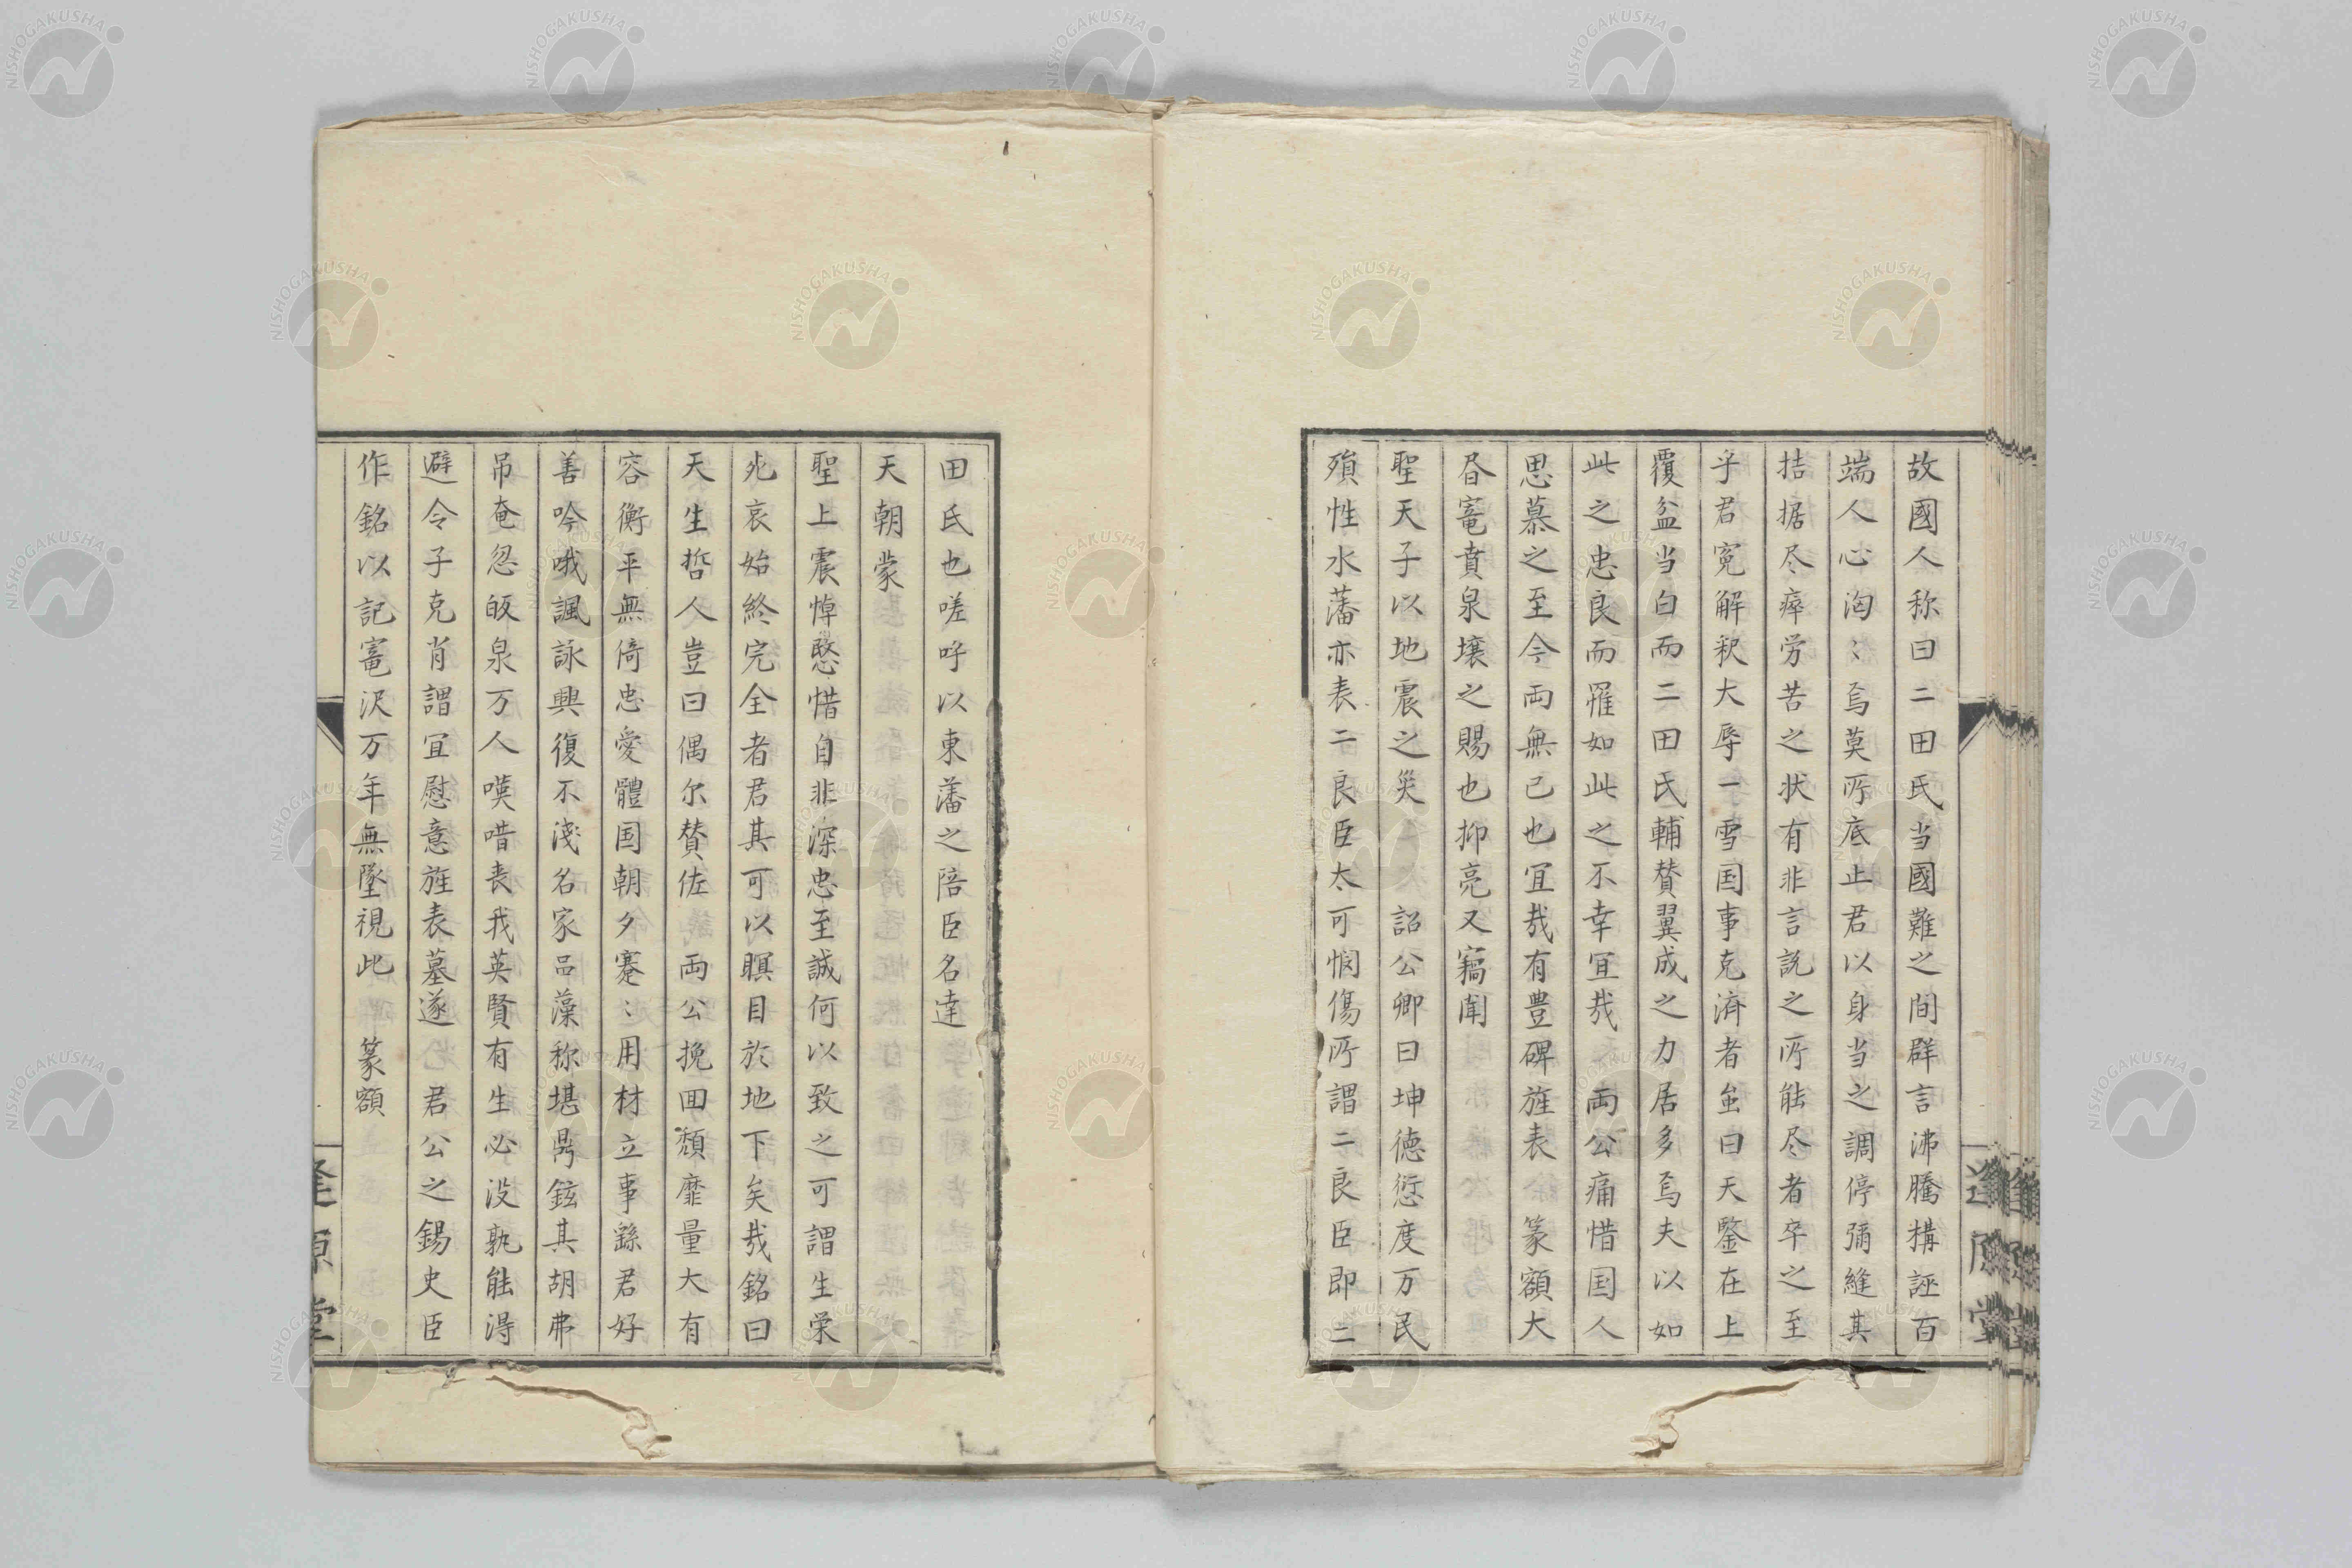 故國人称曰二田氏当國難之間群言沸騰構誣百
端人心洶〻焉莫所底止君以身当之調停彌縫其
拮据尽瘁労苦之状有非言説之所能尽者卒之至
乎君寃解釈大辱一雪国事克済者虽曰天鑒在上
覆盆当白而二田氏輔賛翼成之力居多焉夫以如
此之忠良而罹如此之不幸冝哉 両公痛惜国人
思慕之至今而無已也冝哉有豊碑旌表 篆額大
昏竁賁泉壌之賜也抑亮又竊聞
聖天子以地震之災 詔公卿曰坤徳愆度万民
殞性水藩亦表二良臣太可憫傷所謂二良臣即二
田氏也嗟呼以東藩之陪臣名達
天朝蒙
聖上震悼愍惜自非深忠至誠何以致之可謂生栄
死哀始終完全者君其可以瞑目於地下矣哉銘曰
天生哲人豈曰偶尔賛佐 両公挽囬頽靡量大有
容衡平無倚忠愛體国朝夕蹇〻用材立事繇君好
善吟哦諷詠興復不淺名家品藻称堪鼎鉉其胡弗
吊奄忽皈泉万人嘆唶丧我英賢有生必没孰能得
避令子克肖謂冝慰意旌表墓遂 君公之錫史臣
作銘以記竁沢万年無墜視此 篆額
逢原堂